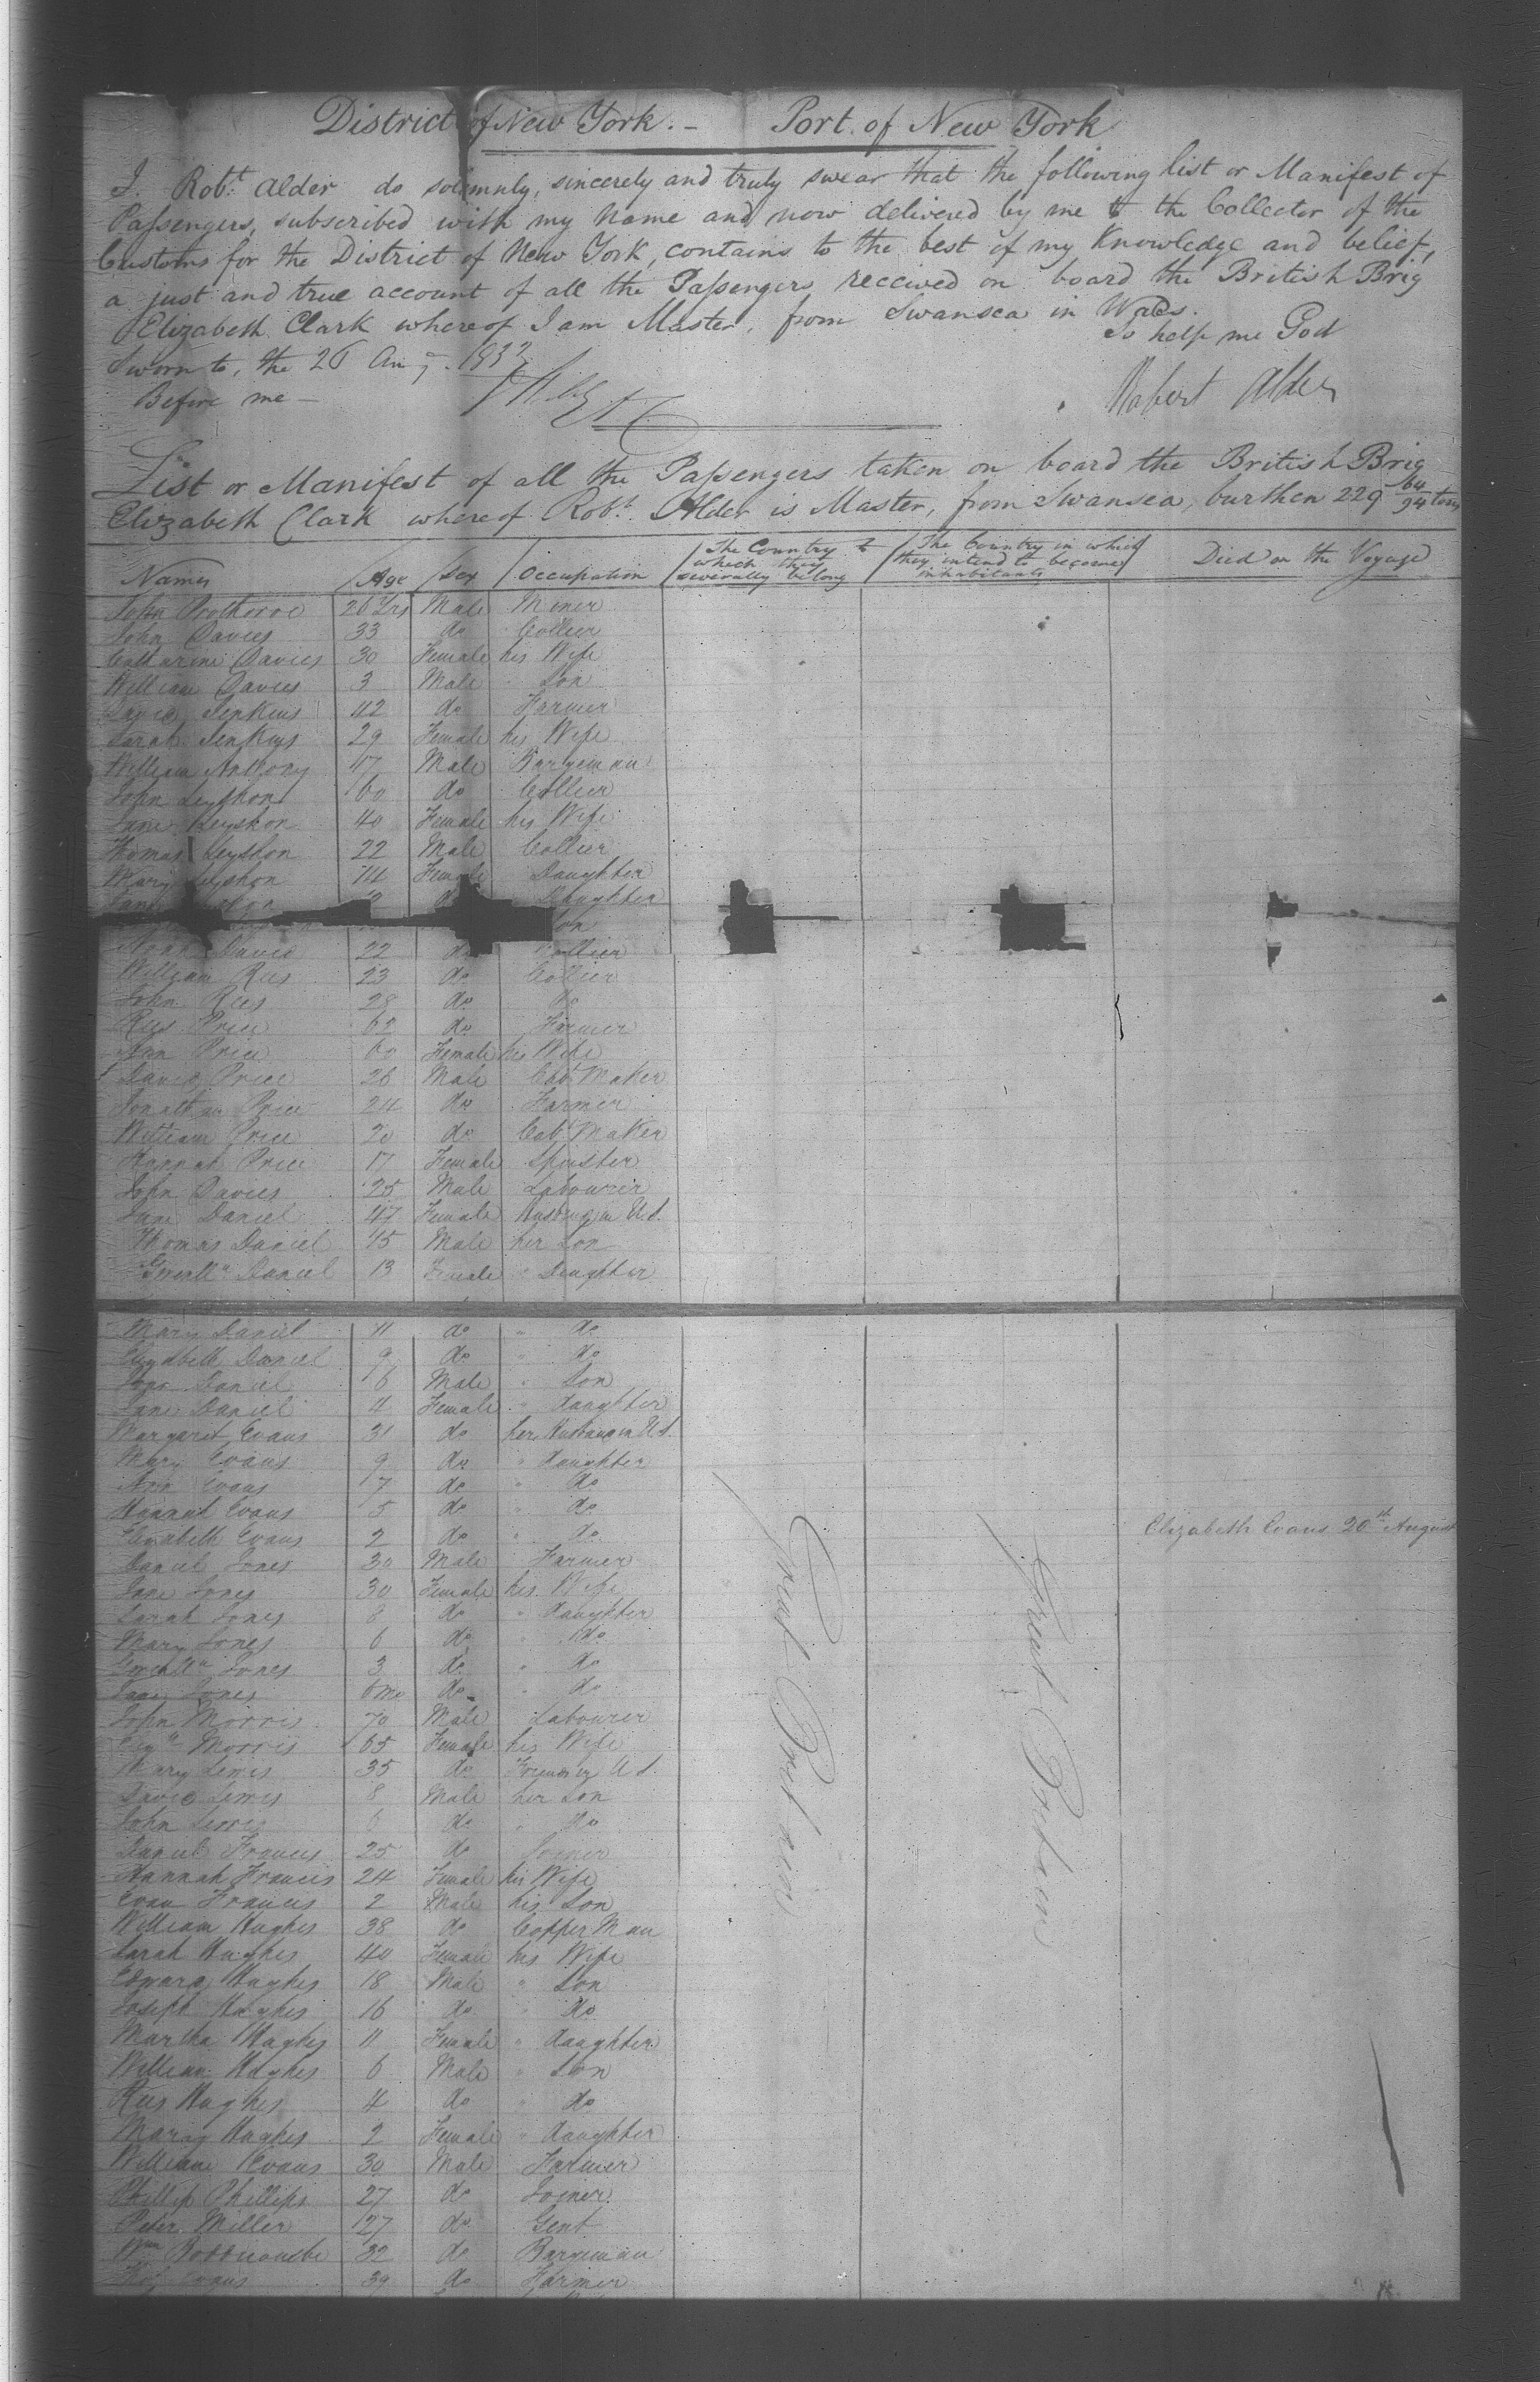 District of New York. – Port of New York
I. Robt. Alder do solemnly, sincerely and truly swear that the following list or Manifest of
Passengers, subscribed with my name and now delivered by me to the Collector of the
Customs for the District of New York, contains to the best of my Knowledge and belief,
a just and true account of all the Passengers received on board the British Brig
Elizabeth Clark whereof I am Master, from Swansea in Wales.
So help me God
Sworn to, the 26 Aug. 1833
Before me –
Robert Alder
List or Manifest of all the Passengers taken on board the British Brig
Elizabeth Clark whereof Robt. Alder is Master, from Swansea, burthen 229 64/94 tons
Names Age Sex Occupation The Country to which they severally belong The Country in which they intend to become inhabitants Died on the Voyage
John Prothoroe 26 Yrs Male Miner
John Davies 33 do Collier
Catharine Davies 30 Female his Wife
William Davies 3 Male Son
David Jenkins 42 do Farmer
Sarah Jenkins 29 Female his Wife
William Anthony 17 Male Bargeman
John Leyshon 60 do Collier
Jane Leyshon 40 Female his Wife
Thomas Leyshon 22 Male Collier
Mary Leyshon 14 Female Daughter
Daughter
Son
Davies 22 do Collier
William Rees 23 do Collier
John Rees 28 do do
Rees Price 62 do Farmer
Ann Price 60 Female his Wife
David Price 26 Male Cabt Maker
Jonathan Price 24 do Farmer
William Price 20 do Cabt Maker
Hannah Price 17 Female Spinster
John Davies 25 Male Labourer
Jane Daniel 47 Female Husband in U.S.
Thomas Daniel 15 Male her Son
Gwenlln Daniel 13 Female " Daughter
Mary Daniel 11 do " do
Elizabeth Daniel 9 do " do
Daniel 6 Male " Son
Jane Daniel 4 Female " daughter
Margaret Evans 31 do her Husband in U.S.
Mary Evans 9 do " daughter
Ann Evans 7 do " do
Hannah Evans 5 do " do
Elizabeth Evans 2 do " do Elizabeth Evans 20th August
Daniel Jones 30 Male Farmer
Jane Jones 30 Female his Wife
Sarah Jones 8 do " daughter
Mary Jones 6 do " do
Gwenlln Jones 3 do " do
Jones 6 mo do " do
John Morris 70 Male Labourer
Morris 65 Female his Wife
Mary Lewis 35 do U.S.
David Lewis 8 Male her Son
John Lewis 6 do " do
Daniel Francis 25 do Joiner
Hannah Francis 24 Female his Wife
Evan Francis 2 Male his Son
William Hughes 38 do Copper Man
Sarah Hughes 40 Female his Wife
Edward Hughes 18 Male " Son
Joseph Hughes 16 do " do
Martha Hughes 11 Female " daughter
William Hughes 6 Male " Son
Rees Hughes 4 do " do
Hughes 2 Female " daughter
William Evans 30 Male Farmer
Phillip Phillips 27 do Joiner
Peter Miller 27 do Gent
Wm 32 do Bargeman
Evans 39 do Farmer
Great Britain
Great Britain